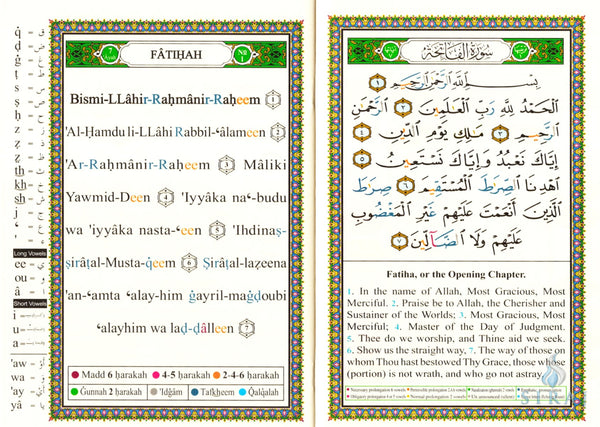 FÂTIḤAH
7 Nº 1
Bismi-LLâhir-Raḥmânir-Raḥeem 1
'Al-Ḥamdu li-LLâhi Rabbil-ʿâlameen 2
'Ar-Raḥmânir-Raḥeem 3 Mâliki
Yawmid-Deen 4 'Iyyâka naʿ-budu
wa 'iyyâka nasta-ʿeen 5 'Ihdinaṣ-
ṣirâṭal-Musta-q̇eem 6 Ṣirâṭal-laẓeena
'an-ʿamta ʿalay-him ġayril-maġḍoubi
ʿalayhim wa laḍ-ḍâlleen 7
Madd 6 ḥarakah 4-5 ḥarakah 2-4-6 ḥarakah
Ġunnah 2 ḥarakah 'Idġâm Tafkheem Qalqalah
q̇
ḍ
ġ
ṭ
ṣ
ẓ
z
th
kh
sh
h
j
r
y
Long Vowels
ee
ou
â
Short Vowels
i
u
a
'aw
wa
'ay
yâ
سُورَةُ الْفَاتِحَةِ
بِسْمِ ٱللَّهِ ٱلرَّحْمَٰنِ ٱلرَّحِيمِ ١
ٱلْحَمْدُ لِلَّهِ رَبِّ ٱلْعَٰلَمِينَ ٢ ٱلرَّحْمَٰنِ
ٱلرَّحِيمِ ٣ مَٰلِكِ يَوْمِ ٱلدِّينِ ٤
إِيَّاكَ نَعْبُدُ وَإِيَّاكَ نَسْتَعِينُ ٥
ٱهْدِنَا ٱلصِّرَٰطَ ٱلْمُسْتَقِيمَ ٦ صِرَٰطَ
ٱلَّذِينَ أَنْعَمْتَ عَلَيْهِمْ غَيْرِ ٱلْمَغْضُوبِ
عَلَيْهِمْ وَلَا ٱلضَّآلِّينَ ٧
Fatiha, or the Opening Chapter.
1. In the name of Allah, Most Gracious, Most
Merciful. 2. Praise be to Allah, the Cherisher and
Sustainer of the Worlds; 3. Most Gracious, Most
Merciful; 4. Master of the Day of Judgment.
5. Thee do we worship, and Thine aid we seek.
6. Show us the straight way, 7. The way of those on
whom Thou hast bestowed Thy Grace, those whose
(portion) is not wrath, and who go not astray.